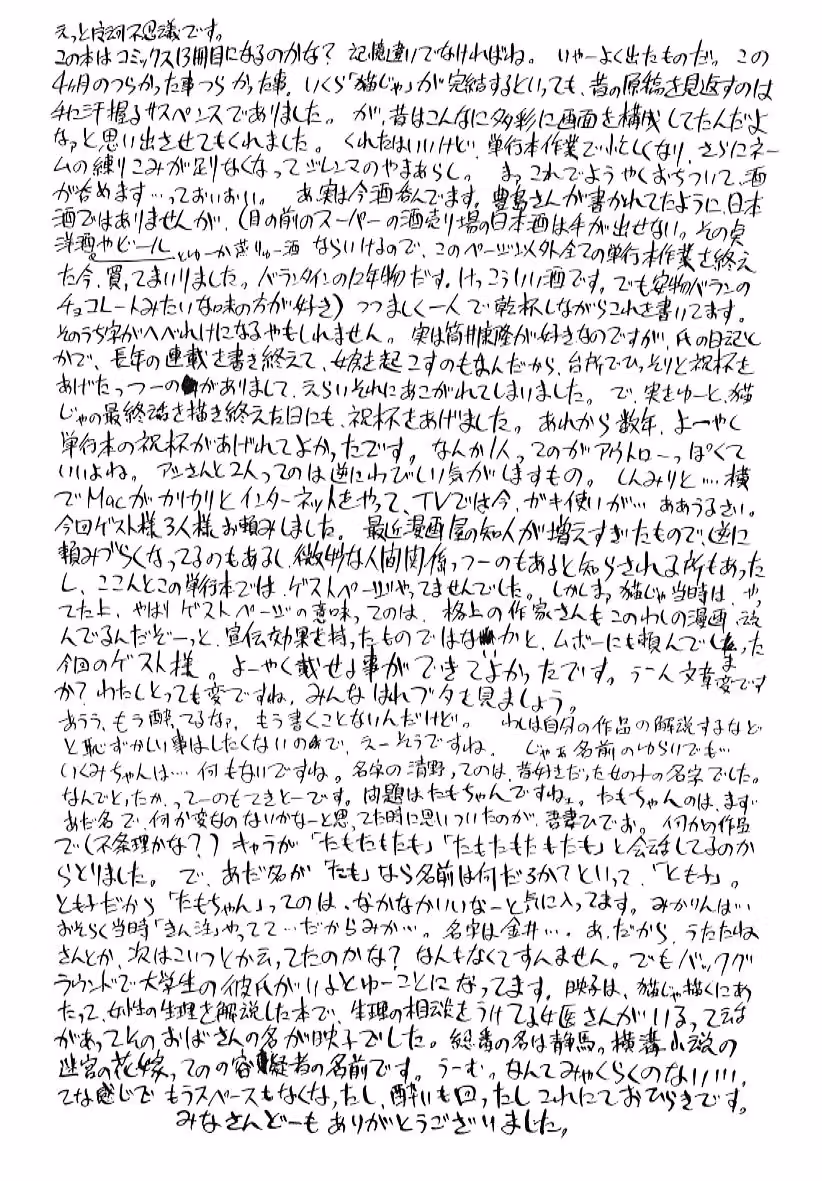 えっと唐沢不思議です。
この本はコミックス13冊目になるのかな? 記憶違いでなければね。 いやーよく出たものだ。 この
4ヶ月のつらかった事つらかった事。いくら「猫じゃ」が完結するといっても、昔の原稿を見返すのは
手に汗握るサスペンスでありました。 が、昔はこんなに多彩に画面を構成してたんだよ
なァと思い出させてもくれました。 くれたはいいけど、単行本作業で忙しくなり、さらにネー
ムの練りこみが足りなくなってジレンマのやまあらし。 まっこれでようやくおちついて、酒
が呑めます…っておいおい。 あ、実は今酒呑んでます。豊島さんが書かれてたように、日本
酒ではありませんが、(目の前のスーパーの酒売り場の日本酒は手が出せない。その点
洋酒やビールとゆーか蒸りゅー酒ならいけるので、このページ以外全ての単行本作業を終え
た今、買ってまいりました。バランタインの12年物だす。けっこういい酒です。でも安物バランの
チョコレートみたいな味の方が好き) つつましく一人で乾杯しながらこれを書いてます。
そのうち字がへべれけになるやもしれません。 実は筒井康隆が好きなのですが、氏の日記と
かで、長年の連載を書き終えて、女房を起こすのもなんだから、台所でひっそりと祝杯を
あげたっつーのがありまして、えらいそれにあこがれてしまいました。 で、実をゆーと、猫
じゃの最終話を描き終えた日にも、祝杯をあげました。 あれから数年、よーやく
単行本の祝杯があげれてよかったです。 なんか1人ってのがアウトローっぽくて
いいよね。 アシさんと2人ってのは逆にわびしい気がしますもの。 しんみりと…横
でMacがカリカリとインターネットをやって、TVでは今、ガキ使いが… ああうるさい。
今回ゲスト様3人様お頼みしました。 最近漫画屋の知人が増えすぎたもので、逆に
頼みづらくなってるのもあるし、微妙な人間関係っつーのもあると知らされる所もあった
し、ここんとこの単行本では、ゲストページやってませんでした。しかしまっ猫じゃ当時は、やっ
てた上、やはりゲストページの意味ってのは、格上の作家さんもこのわしの漫画、読
んでるんだぞーっと、宣伝効果を持ったものではないかと、ムボーにも頼んでしまった
今回のゲスト様。よーやく載せる事ができてよかったです。 うーん文章変です
か? わたしとっても変ですね。みんなはれブタを見ましょう。
あうう、もう酔ってるなァ、もう書くことないんだけど。 わしは自分の作品の解説するなど
と恥ずかしい事はしたくないので、えーそうですね。 じゃぁ名前のゆらいでも…
いくみちゃんは…何もないですね。名字の清野ってのは、昔好きだった女の子の名字でした。
なんでとったかってーのもてきとーです。問題はたもちゃんですねェ。たもちゃんのは、まず
あだ名で何か変なのないかなーと思ってた時に思いついたのが、吾妻ひでお。何かの作品
で(不条理かな?) キャラが「たもたもたも」「たもたもたもたも」と会話してるのか
らとりました。 で、あだ名が「たも」なら名前は何だろか?といって、「とも子」。
とも子だから「たもちゃん」ってのは、なかなかいいなーと気に入ってます。みかりんは…
おそらく当時「きん注」やってて…だからみか…。名字は金井…。あ、だから、うたたね
さんとか、次はこいつとか云ってたのかな? なんもなくてすんません。でもバックグ
ラウンドで大学生の彼氏がいるとゆーことになってます。映子は、猫じゃ描くにあ
たって、女性の生理を解説した本で、生理の相談をうけてる女医さんがいるって話
があってそのおばさんの名が映子でした。総番の名は静馬。横溝小説の
迷宮の花嫁ってのの容疑者の名前です。うーむ。なんてみゃくらくのない!!!!
てな感じでもうスペースもなくなったし、酔いも回ったしこれにておひらきです。
みなさんどーもありがとうございました。